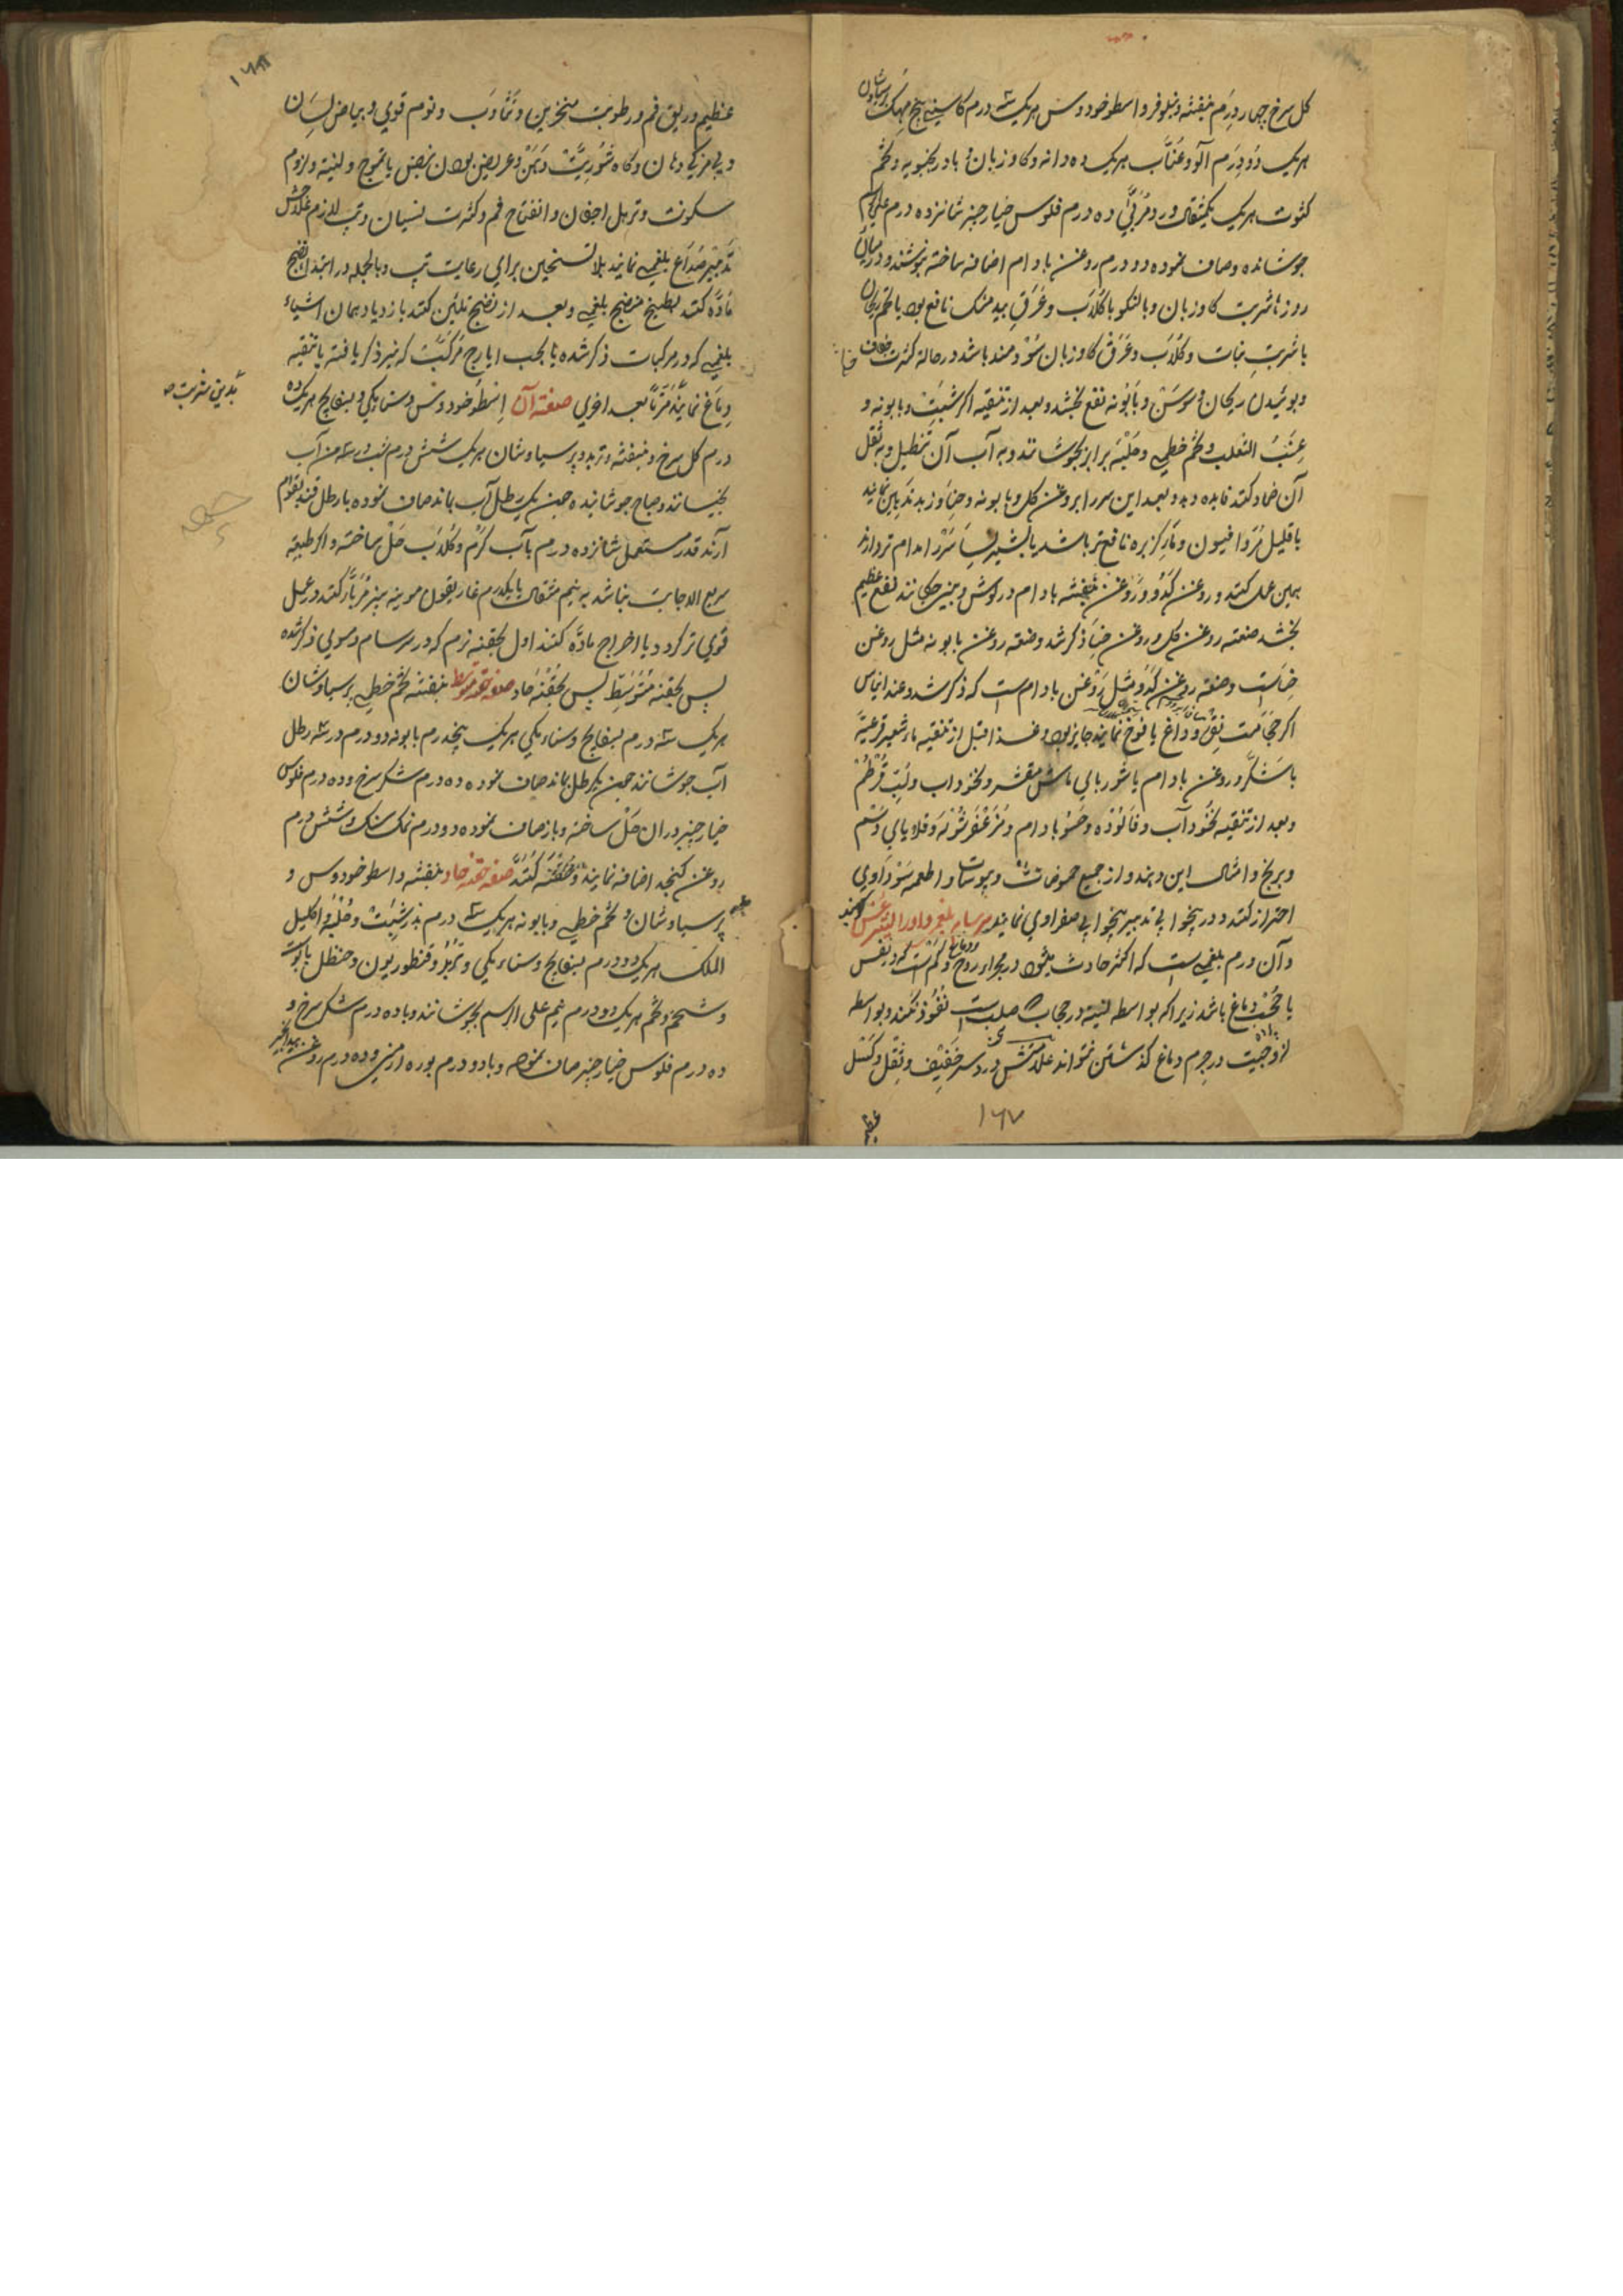 کل سرخ چهار درم بنفشه و نیلوفر و اسطوخودوس هریک سه درم کاسنی بیخ مهک پرسیاوشان
هریک دو درم آلو و عناب هریک ده دانه و کاو زبان و بادرنجبویه و تخم
کثوث هریک یکمثقال ورد مربی ده درم فلوس خیارچنبر شانزده درم علی الرسم
جوشانده و صاف نموده دو درم روغن بادام اضافه ساخته بنوشند و در میان
روزها شربت کاوزبان و بالنکو با کلاب و عرق بیدمشک نافع بود با تخم ریحان
با شربت نبات و کلاب و عرق کاوزبان سودمند باشد در حالة کثرت جفاف
و بوئیدن ریحان و سوسن و بابونه نفع بخشد و بعد از تنقیه اکر شبت و بابونه و
عنب الثعلب و تخم خطمی و حلبه برابر بجوشانند و به آب آن تنطیل و به ثقل
آن ضماد کنند فایده دهد و بعد این سر را بروغن کل و بابونه و
با قلیل فرافیون و نافع تر باشد یا بشیر سر را مدام تر دارند
بهمین عمل کنند و روغن کدو و روغن بنفشه بادام در کوش و بینی چکانند نفع عظیم
بخشد صنعته روغن کل و روغن ذکر شد و صنعته روغن بابونه مثل روغن
است و صنعته روغن کدو مثل روغن بادام است که ذکر شد و عند الیاس
اکر حجامت نقره و داغ یافوخ نمایند جایز بود و غذا قبل از تنقیه ماء شعیر قرعیة
با شکر و روغن بادام یا شوربای ماش مقشر و نخوداب و لب قرطم
و بعد از تنقیه نخودآب و فالوذه و حسو بادام و مزعفر شوله و قلایای دسم
و برنج و امثال این دهند و از جمیع حموضات و یبوسات و اطعمه سوداوی
احتراز کنند و در بیخوابی تدبیر بیخوابی صفراوی نمایند سرسام بلغمی و او را لیثرغس کویند
و آن ورم بلغمی است که اکثر حادث میشود در مجرای روح و کم است که در نفس
یا حجب دماغ باشد زیرا که بواسطه لینته در حجاب که صلب است نفوذ نکند و بواسطه
لزوجیت در جرم دماغ کذشتن نتواند علامتش درد سر خفیف و ثقل و کسل
۱۶۷
عظیم
۱۶۸
عظیم و ریق فم و رطوبت منخرین و تثاوب و نوم قوی و بیاض لسان
و بی مزکی دهان و کاه شوریت دهن و عریض بودن نبض با تموج و لینته و لزوم
سکونت و ترهل اجفان و انفتاح فم و کثرت نسیان و تب لازم علاجش
تدبیر صداع بلغمی نمایند بلا تسخین برای رعایت تپ و بالجمله در ابتدا نضج
ماده کنند بطبیخ منضج بلغمی و بعد از نضج تلیین کنند بازدیاد همان اشیاء
بلغمی که در مرکبات ذکر شده یا بحب ایارج مرکبت که نیز ذکر یافته یا تنقیه
دماغ نمایند مرتا بعد اخری صفته آن اسطوخودوس و سنا مکی و بسفایج هریک ده
بدین شربت
درم کل سرخ و بنفشه و تربد و پرسیاوشان هریک شش درم شب در سه من آب
بخیسانند و صباح جوشانیده چون یک رطل آب بماند صاف نموده با رطل قند بقوام
آرند قدر مستعمل شانزده درم با آب کرم و کلاب حل ساخته و اکر طبیعه
سریع الاجابت نباشد به نیم مثقال یا یکدرم غاریقون مویزنه بیز کنند و عمل
قوی تر کردد یا اخراج ماده کنند اول بحقنه نرم که در سرسام دموی ذکر شده
پس بحقنه متوسط پس بحقنه حاد صفته حقنه متوسط بنفشه تخم خطمی پرسیاوشان
هریک سه درم بسفایج و سناء مکی هریک پنجدرم بابونه دو درم در سه رطل
آب جوشانند چون یکرطل بماند صاف نموده ده درم شکر سرخ و ده درم فلوس
خیارچنبر در ان حل ساخته و باز صاف نموده دو درم نمک سنک و شش درم
روغن کنجد اضافه نمایند و حقنه کنند صفته حقنه حاد بنفشه و اسطوخودوس و
پرسیاوشان و تخم خطمی و بابونه هریک سه درم بذر شبت و حلبه و اکلیل
الملک هریک دو درم بسفایج و سناء مکی و تربد و قنطوریون و حنظل با پوست
و شحم و تخم هریک دو درم نیم علی الرسم بجوشانند و با ده درم شکر سرخ و
ده درم فلوس خیارچنبر صاف نموده و با دو درم بوره ارمنی و ده درم روغن بیدانجیر